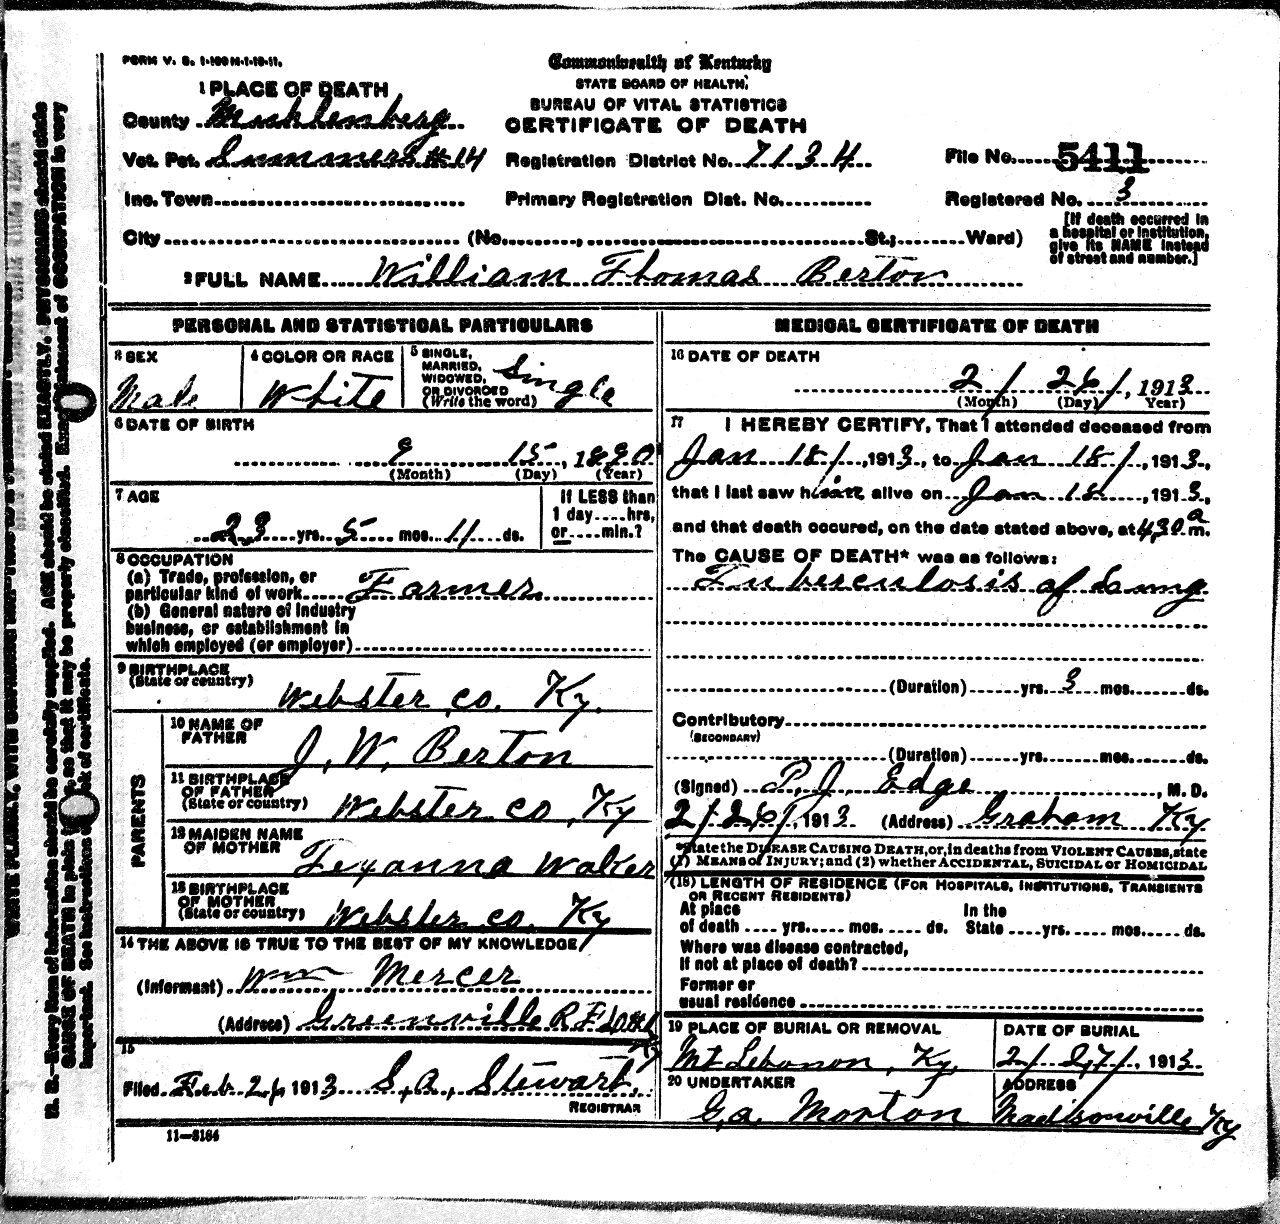 FORM V. S. 1-100 M-1-10-11.
Commonwealth of Kentucky
STATE BOARD OF HEALTH,
BUREAU OF VITAL STATISTICS
CERTIFICATE OF DEATH
1 PLACE OF DEATH
County Muhlenberg
Vot. Pct. Summers #14 Registration District No. 7134 File No. 5411
Inc. Town Primary Registration Dist. No. Registered No. 3
City (No. , St.; Ward)
[If death occurred in
a hospital or institution,
give its NAME instead
of street and number.]
2 FULL NAME William Thomas Berton
PERSONAL AND STATISTICAL PARTICULARS
3 SEX
Male
4 COLOR OR RACE
White
5 SINGLE,
MARRIED,
WIDOWED,
OR DIVORCED
(Write the word)
Single
6 DATE OF BIRTH
9 15, 1890
(Month) (Day) (Year)
7 AGE
23 yrs. 5 mos. 11 ds.
If LESS than
1 day....hrs,
or....min.?
8 OCCUPATION
(a) Trade, profession, or
particular kind of work Farmer
(b) General nature of industry
business, or establishment in
which employed (or employer)
9 BIRTHPLACE
(State or country)
Webster co. Ky.
PARENTS
10 NAME OF
FATHER
J. W. Berton
11 BIRTHPLACE
OF FATHER
(State or country)
Webster co, Ky
12 MAIDEN NAME
OF MOTHER
Texanna Walker
13 BIRTHPLACE
OF MOTHER
(State or country)
Webster co, Ky
14 THE ABOVE IS TRUE TO THE BEST OF MY KNOWLEDGE
(Informant) Wm Mercer
(Address) Greenville R F D
Ky
15
Filed Feb 26 1913 S. A. Stewart,
REGISTRAR
11—3184
MEDICAL CERTIFICATE OF DEATH
16 DATE OF DEATH
2/ 26/, 1913
(Month) (Day) Year)
17 I HEREBY CERTIFY, That I attended deceased from
Jan 18/, 1913, to Jan 18/, 1913,
that I last saw him alive on Jan 18, 1913,
and that death occured, on the date stated above, at 4,30 a m.
The CAUSE OF DEATH* was as follows:
Tuberculosis of Lung
(Duration) yrs. 3 mos. ds.
Contributory
(SECONDARY)
(Duration) yrs. mos. ds.
(Signed) P. J. Edge, M. D.
2/26/, 1913 (Address) Graham Ky
*State the DISEASE CAUSING DEATH, or, in deaths from VIOLENT CAUSES, state
(1) MEANS of INJURY; and (2) whether ACCIDENTAL, SUICIDAL or HOMICIDAL
(18) LENGTH OF RESIDENCE (FOR HOSPITALS, INSTITUTIONS, TRANSIENTS
OR RECENT RESIDENTS)
At place In the
of death .... yrs. .... mos. .... ds. State .... yrs. .... mos. .... ds.
Where was disease contracted,
If not at place of death?
Former or
usual residence
19 PLACE OF BURIAL OR REMOVAL
Mt Lebanon, Ky,
DATE OF BURIAL
2/27/, 1913
20 UNDERTAKER
G. a. Morton
ADDRESS
Madisonville Ky
N. B.—Every item of information should be carefully supplied. AGE should be stated EXACTLY. PHYSICIANS should state
CAUSE OF DEATH in plain so that it may be properly classified. statement of OCCUPATION is very
important. See instructions back of certificate.